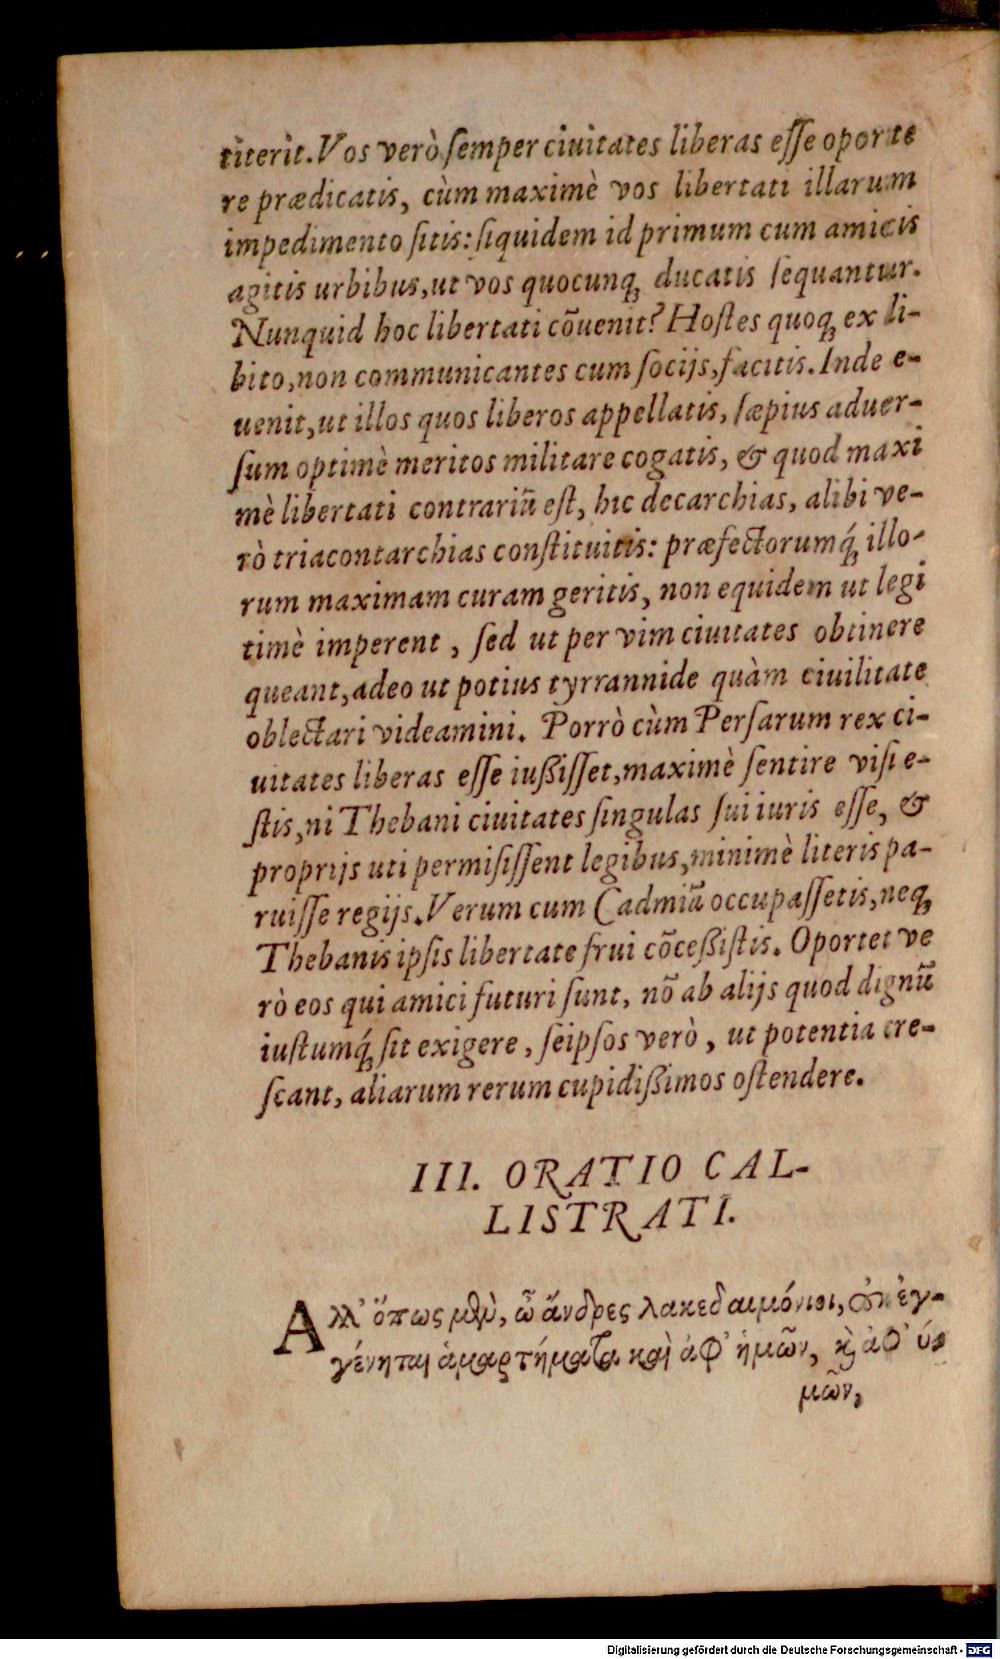 titerit. Vos verò semper ciuitates liberas esse oporte
re prædicatis, cùm maximè vos libertati illarum
impedimento sitis: siquidem id primum cum amicis
agitis urbibus, ut vos quocunq; ducatis sequantur.
Nunquid hoc libertati cõuenit? Hostes quoq; ex li-
bito, non communicantes cum socijs, facitis. Inde e-
uenit, ut illos quos liberos appellatis, sæpius aduer-
sum optimè meritos militare cogatis, & quod maxi
mè libertati contrariũ est, hic decarchias, alibi ve-
rò triacontarchias constituitis: præfectorumq́; illo-
rum maximam curam geritis, non equidem ut legi
timè imperent, sed ut per vim ciuitates obtinere
queant, adeo ut potius tyrrannide quàm ciuilitate
oblectari videamini. Porrò cùm Persarum rex ci-
uitates liberas esse iußisset, maximè sentire visi e-
stis, ni Thebani ciuitates singulas sui iuris esse, &
proprijs uti permisissent legibus, minimè literis pa-
ruisse regijs. Verum cum Cadmiã occupassetis, neq;
Thebanis ipsis libertate frui cõceßistis. Oportet ve
rò eos qui amici futuri sunt, nõ ab alijs quod dignũ
iustumq́; sit exigere, seipsos verò, ut potentia cre-
scant, aliarum rerum cupidißimos ostendere.
III. ORATIO CAL-
LISTRATI.
Αλλ' ὅπως μὲν, ὦ ἄνδρες λακεδαιμόνιοι, οὐκ ἐγ-
γένηται ἁμαρτήματα καὶ ἀφ' ἡμῶν, καὶ ἀφ' ὑ-
μῶν,
Digitalisierung gefördert durch die Deutsche Forschungsgemeinschaft - DFG